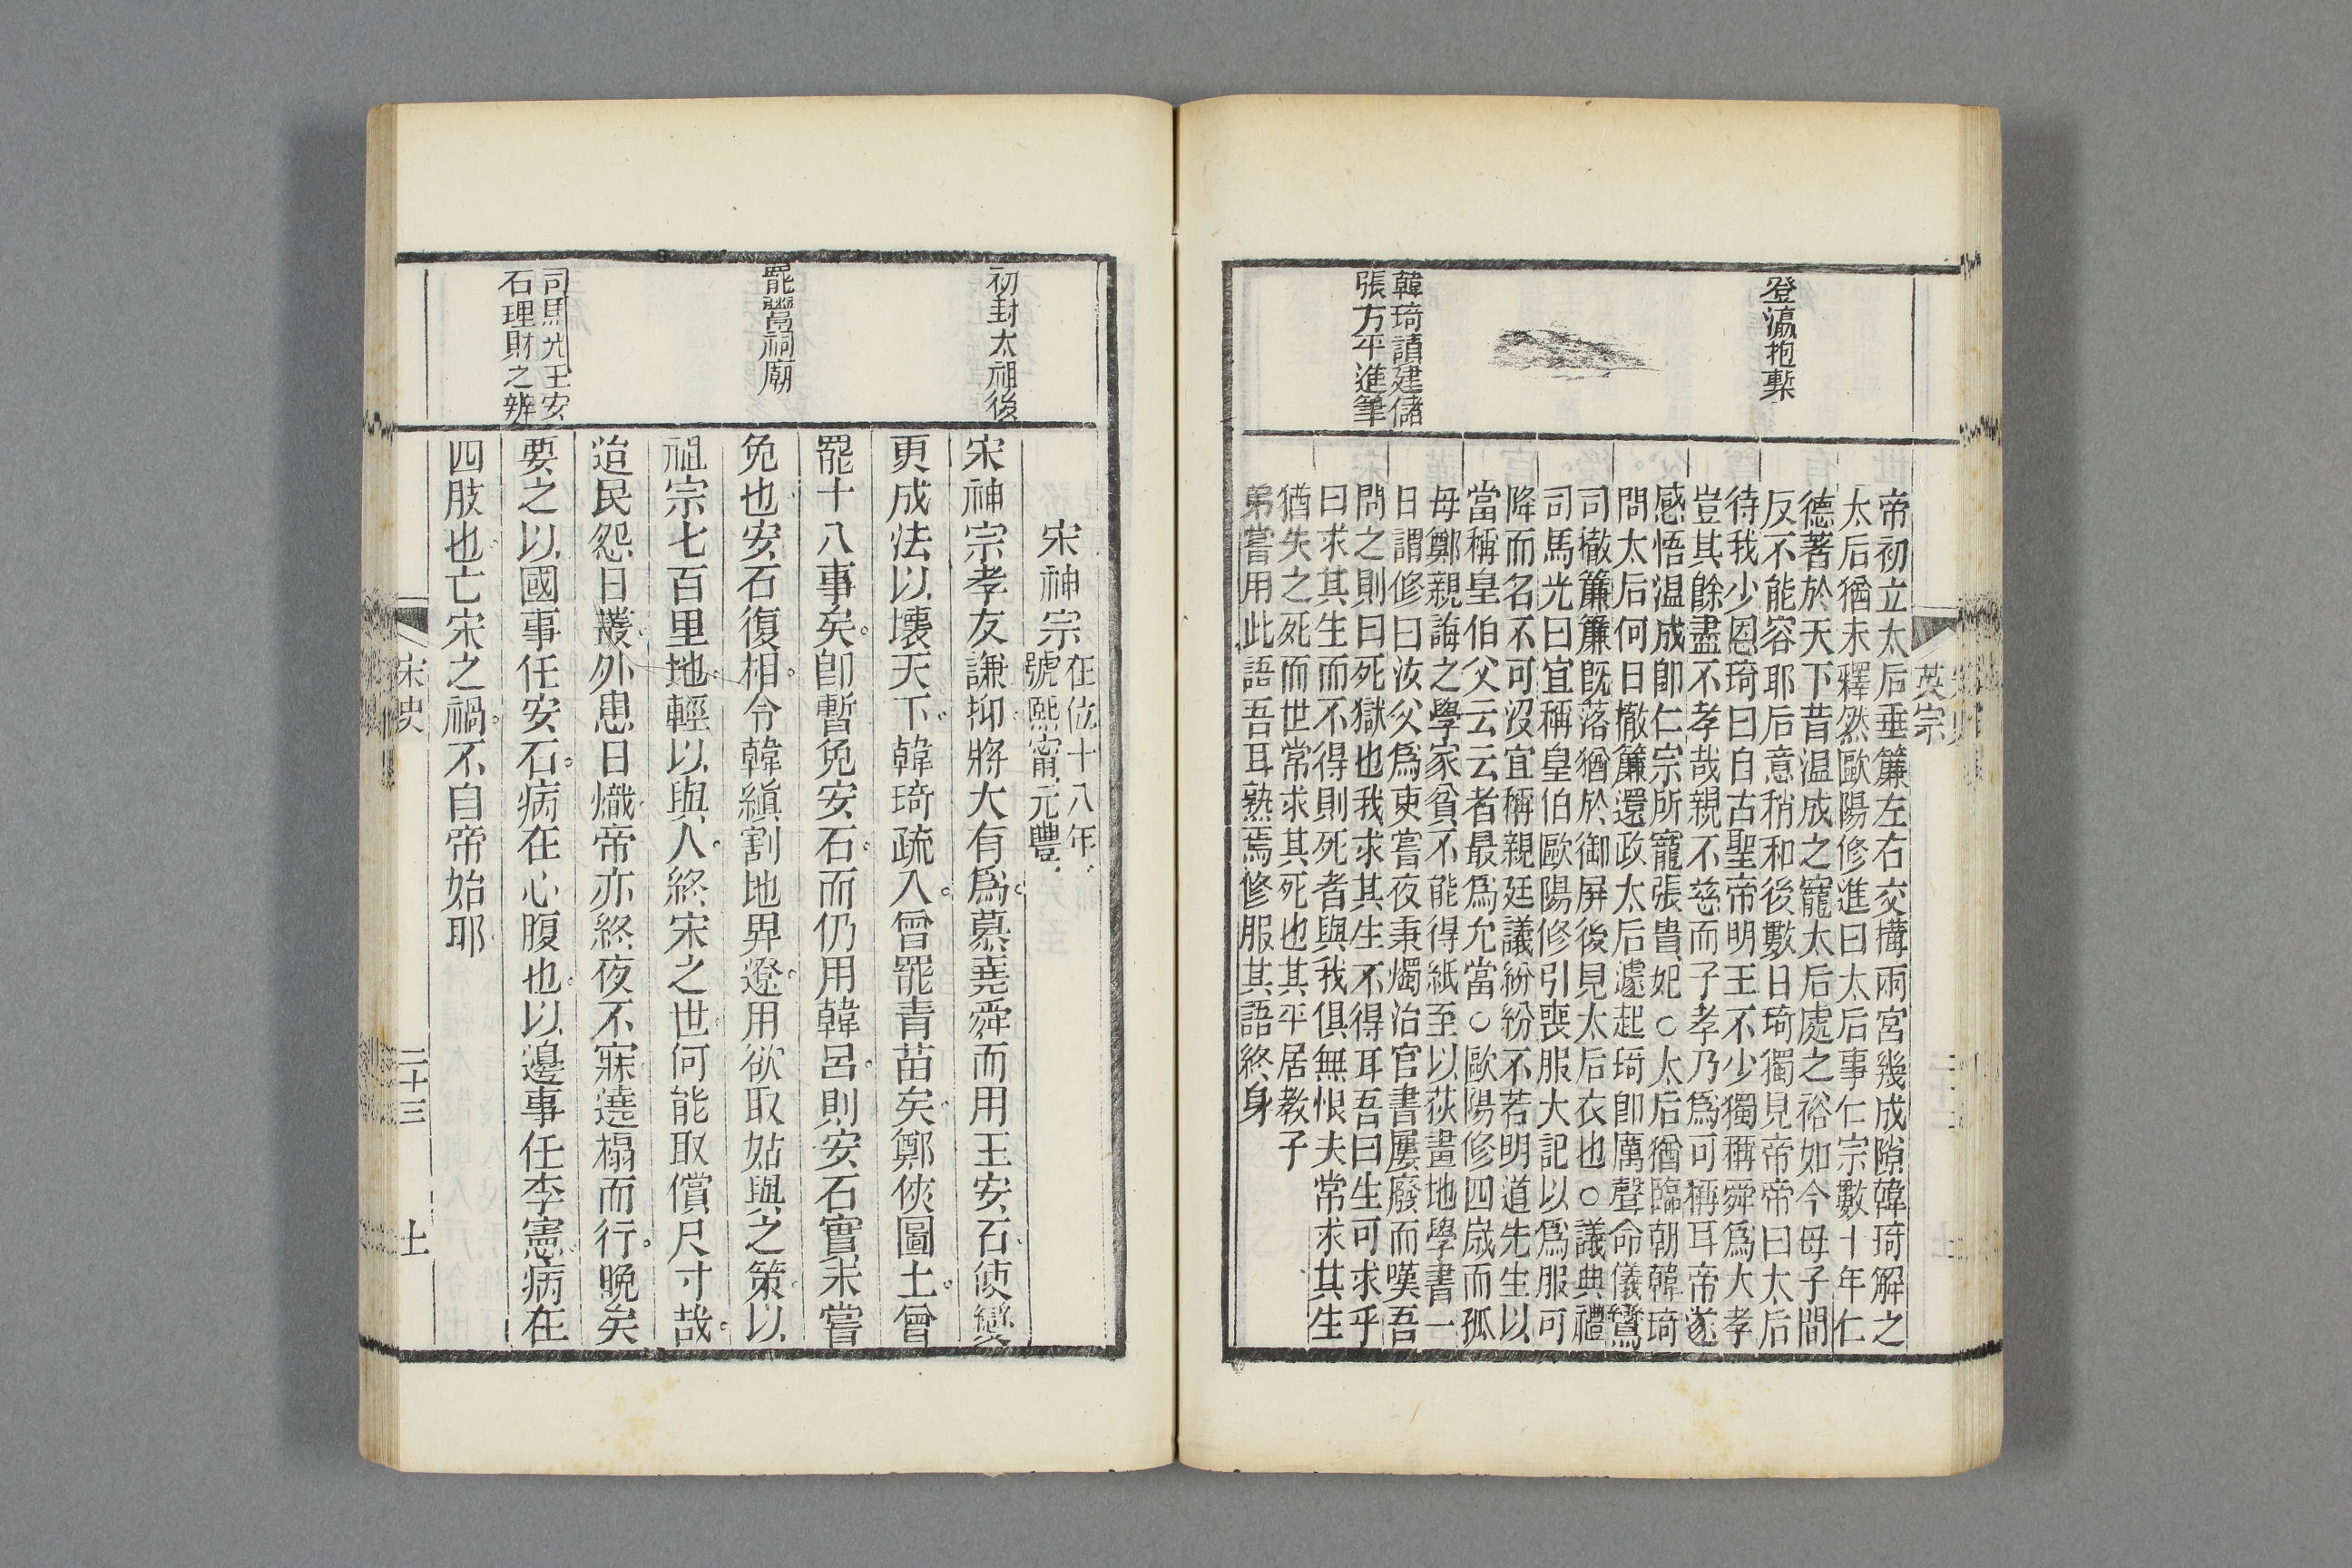 英宗
登瀛抱槧
韓琦讀建儲
張方平進筆
帝初立太后垂簾左右交搆兩宮幾成隙韓琦解之
太后猶未釋然歐陽修進曰太后事仁宗數十年仁
德著於天下昔温成之寵太后處之裕如今母子間
反不能容耶后意稍和後數日琦獨見帝帝曰太后
待我少恩琦曰自古聖帝明王不少獨稱舜爲大孝
豈其餘盡不孝哉親不慈而子孝乃爲可稱耳帝遂
感悟温成卽仁宗所寵張貴妃○太后猶臨朝韓琦
問太后何日撤簾還政太后遽起琦卽厲聲命儀鸞
司撤簾簾旣落猶於御屏後見太后衣也○議典禮
司馬光曰宜稱皇伯歐陽修引喪服大記以爲服可
降而名不可沒宜稱親廷議紛紛不若明道先生以
當稱皇伯父云云者最爲允當○歐陽修四歲而孤
母鄭親誨之學家貧不能得紙至以荻畫地學書一
日謂修曰汝父爲吏嘗夜秉燭治官書屢廢而嘆吾
問之則曰死獄也我求其生不得耳吾曰生可求乎
曰求其生而不得則死者與我俱無恨夫常求其生
猶失之死而世常求其死也其平居教子
弟嘗用此語吾耳熟焉修服其語終身
初封太祖後
罷鬻祠廟
司馬光王安
石理財之辨
宋神宗 在位十八年
號熙甯元豐
宋神宗孝友謙抑將大有爲慕堯舜而用王安石使變
更成法以壞天下韓琦疏入曾罷青苗矣鄭俠圖上曾
罷十八事矣卽暫免安石而仍用韓呂則安石實未嘗
免也安石復相令韓縝割地界遼用欲取姑與之策以
祖宗七百里地輕以與人終宋之世何能取償尺寸哉
迨民怨日叢外患日熾帝亦終夜不寐遶榻而行晚矣
要之以國事任安石病在心腹也以邊事任李憲病在
四肢也亡宋之禍不自帝始耶
宋史
二十三
上